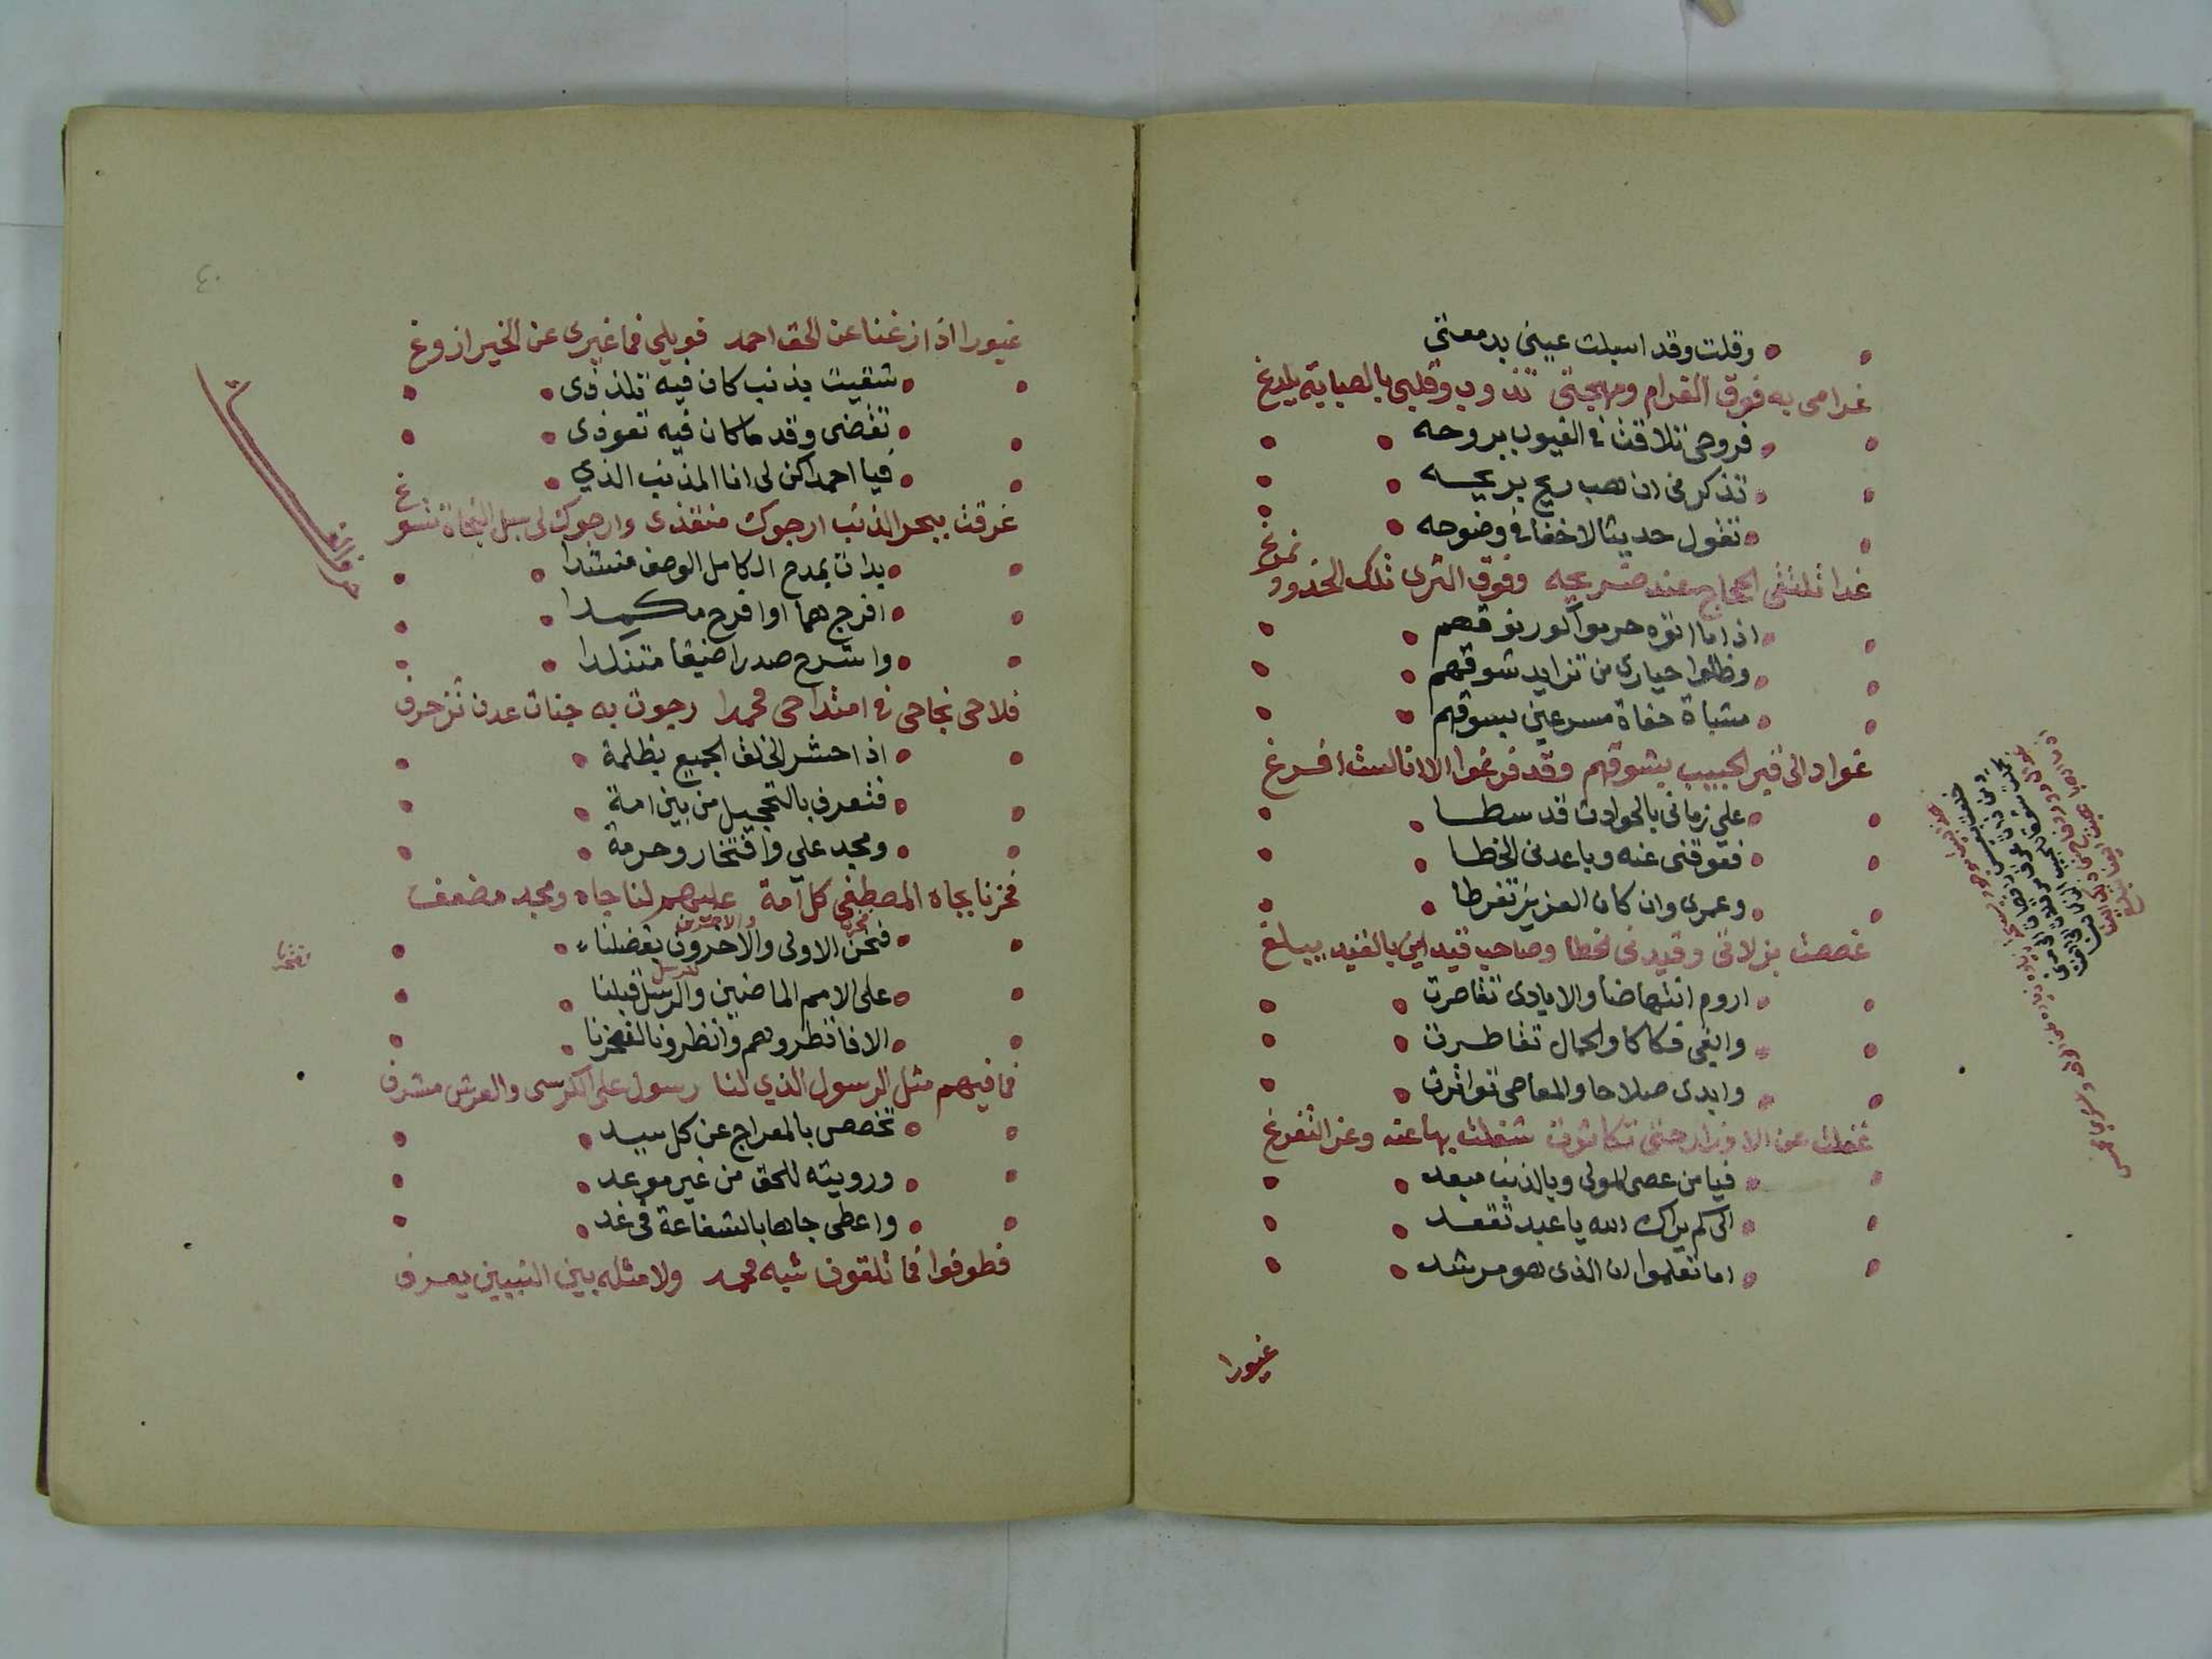 وقلت وقد اسبلت عيني بدمعتي
غرامى به فوق الغرام ومهجتى تذوب وقلبى بالصبابة يلدغ
فروحى تلاقت فى الغيوب بروحه
تذكرنى ان هب ريح بريحه
تقول حديثا لاخفا فى وضوحه
غدا تلتقى الحجاج عند ضريحه وفوق الثرى تلك الخدود تمرغ
اذا ما اتوه حرموا
وظلوا حيارى من تزايد شوقهم
مشاة حفاة مسرعين بسوقهم
غوادا الى قبر الحبيب بشوقهم وقد فرغوا الا انا لست افرغ
على زمانى بالحوادث قد سطا
فعوقنى عنه وباعدنى الخطا
وعمرى وان كان العزيز تفرطا
غصصت بزلاتى وقيدنى الخطا وصاحب قيد اين بالقيد يبلغ
اروم انتهاضا والايادى تقاصرت
وابغى فكاكا والحمال تقاطرت
وابدى صلاحا والمعاصى تواترت
غفلت عن الاوزار حتى تكاثرت شغلت بها عنه وعز التفرغ
فيا من عصى المولى وبالذنب مبعد
الى كم يراك الله يا عبد تقعد
اما تعلموا ان الذى هو مرشد
غيورا
غيورا اذا زغنا عن الحق احمد فويلى فما غيرى عن الخير ازوغ
شقيت بذنب كان فيه تلذذى
تقضى وقد ما كان فيه تعوذى
فيا احمدا كن لى انا المذنب الذي
غرقت ببحر الذنب ارجوك منقذى وارجوك لى سبل النجاة تسوغ
حرف الفاء
بدات بمدح الكامل الوصف منشدا
افرج هما او افرح مكمدا
واشرح صدرا ضيقا متنكدا
فلاحى نجاحى فى امتداحى محمدا رجوت به جنات عدن تزخرف
اذا حشر الخلق الجميع بظلمة
فتعرف بالتحجيل من بين امة
ومجد علي وافتخار وحرمة
فخرنا بجاه المصطفى كل امة عليهم لنا جاه ومجد مضعف
فنحن الاولى والاخرون بفضلنا
على الامم الماضين والرسل قبلنا
الا فانظروهم وانظرونا لفخرنا
فما فيهم مثل الرسول الذي لنا رسول على الكرسى والعرش مشرف
تخصص بالمعراج عن كل سيد
ورويته للحق من غير موعد
واعطى جاها بالشفاعة فى غد
فطوفوا فما تلقون شبه محمد ولا مثله بين النبيين يعرف